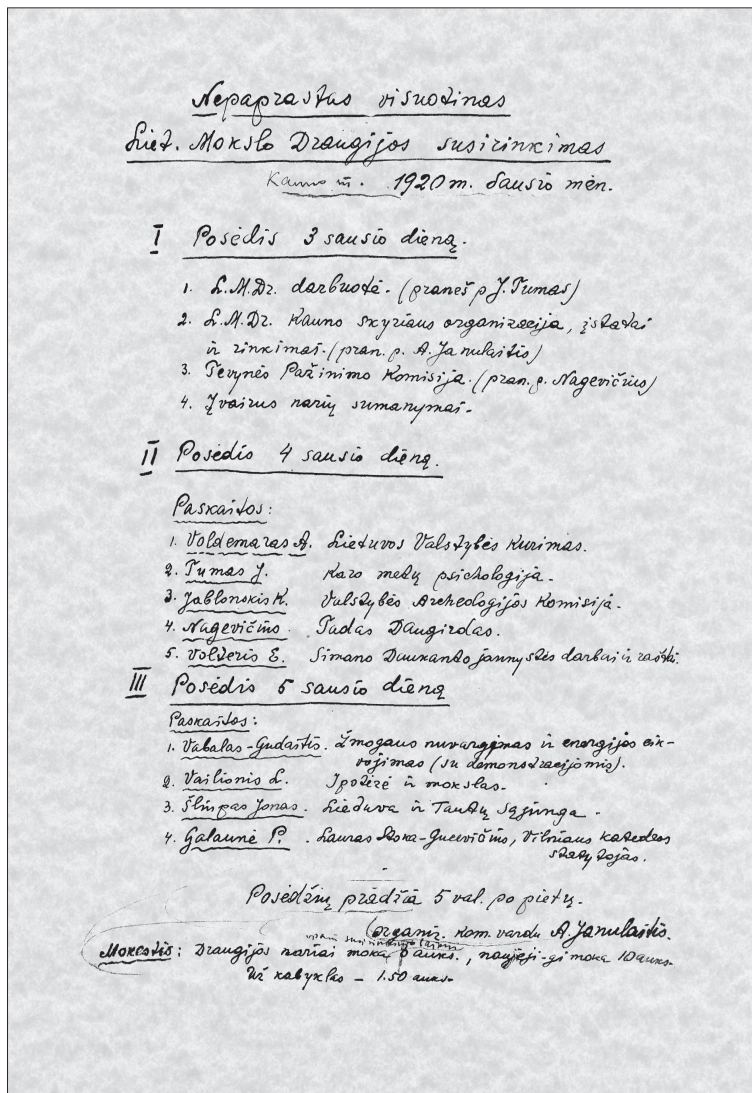 Nepaprastas visuotinas
Liet. Mokslo Draugijos susirinkimas
Kauno m. 1920 m. Sausio mėn.
I Posėdis 3 sausio dieną.
1. L.M.Dr. darbuotė. (praneš p J. Tumas)
2. L.M.Dr. Kauno skyriaus organizacija, įstatai
ir rinkimai. (pran. p. A. Janulaitis)
3. Tėvynės Pažinimo Komisija. (pran. p. Nagevičius)
4. Įvairus narių sumanymai.
II Posėdis 4 sausio dieną.
Paskaitos:
1. Voldemaras A. Lietuvos Valstybės Kurimas.
2. Tumas J. Karo metų psichologija.
3. Jablonskis K. Valstybės Archeologijos Komisija.
4. Nagevičius. Tadas Daugirdas.
5. Volteris E. Simano Daukanto jaunystės darbai ir raštai.
III Posėdis 5 sausio dieną
Paskaitos:
1. Vabalas-Gudaitis. Žmogaus nuvargimas ir energijos eik-
vojimas (su demonstracijomis).
2. Vailionis L. Ipotezė ir mokslas.
3. Šliupas Jonas. Lietuva ir Tautų sąjunga.
4. Galaunė P. Lauras Stoka-Gucevičius, Vilniaus katedros
statytojas.
Posėdžių pradžia 5 val. po pietų.
Organiz. kom. vardu A. Janulaitis.
visam susirinkimo laikui
Mokestis: Draugijos nariai moka 5 auks., naujieji-gi moka 10 auks.
Už kabyklas – 1.50 auks.